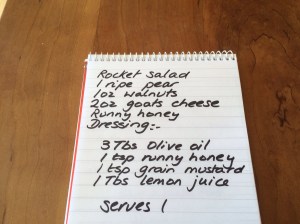 Rocket Salad
1 ripe pear
1oz walnuts
2oz goats cheese
Runny honey
Dressing:-
3 Tbs Olive oil
1 tsp runny honey
1 tsp grain mustard
1 Tbs lemon juice
Serves 1